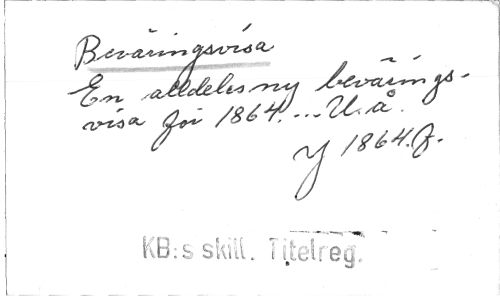 Beväringsvisa
En alldeles ny bevärings-
visa för 1864. ... U.å.
Y 1864. J.
KB:s skill. Titelreg.